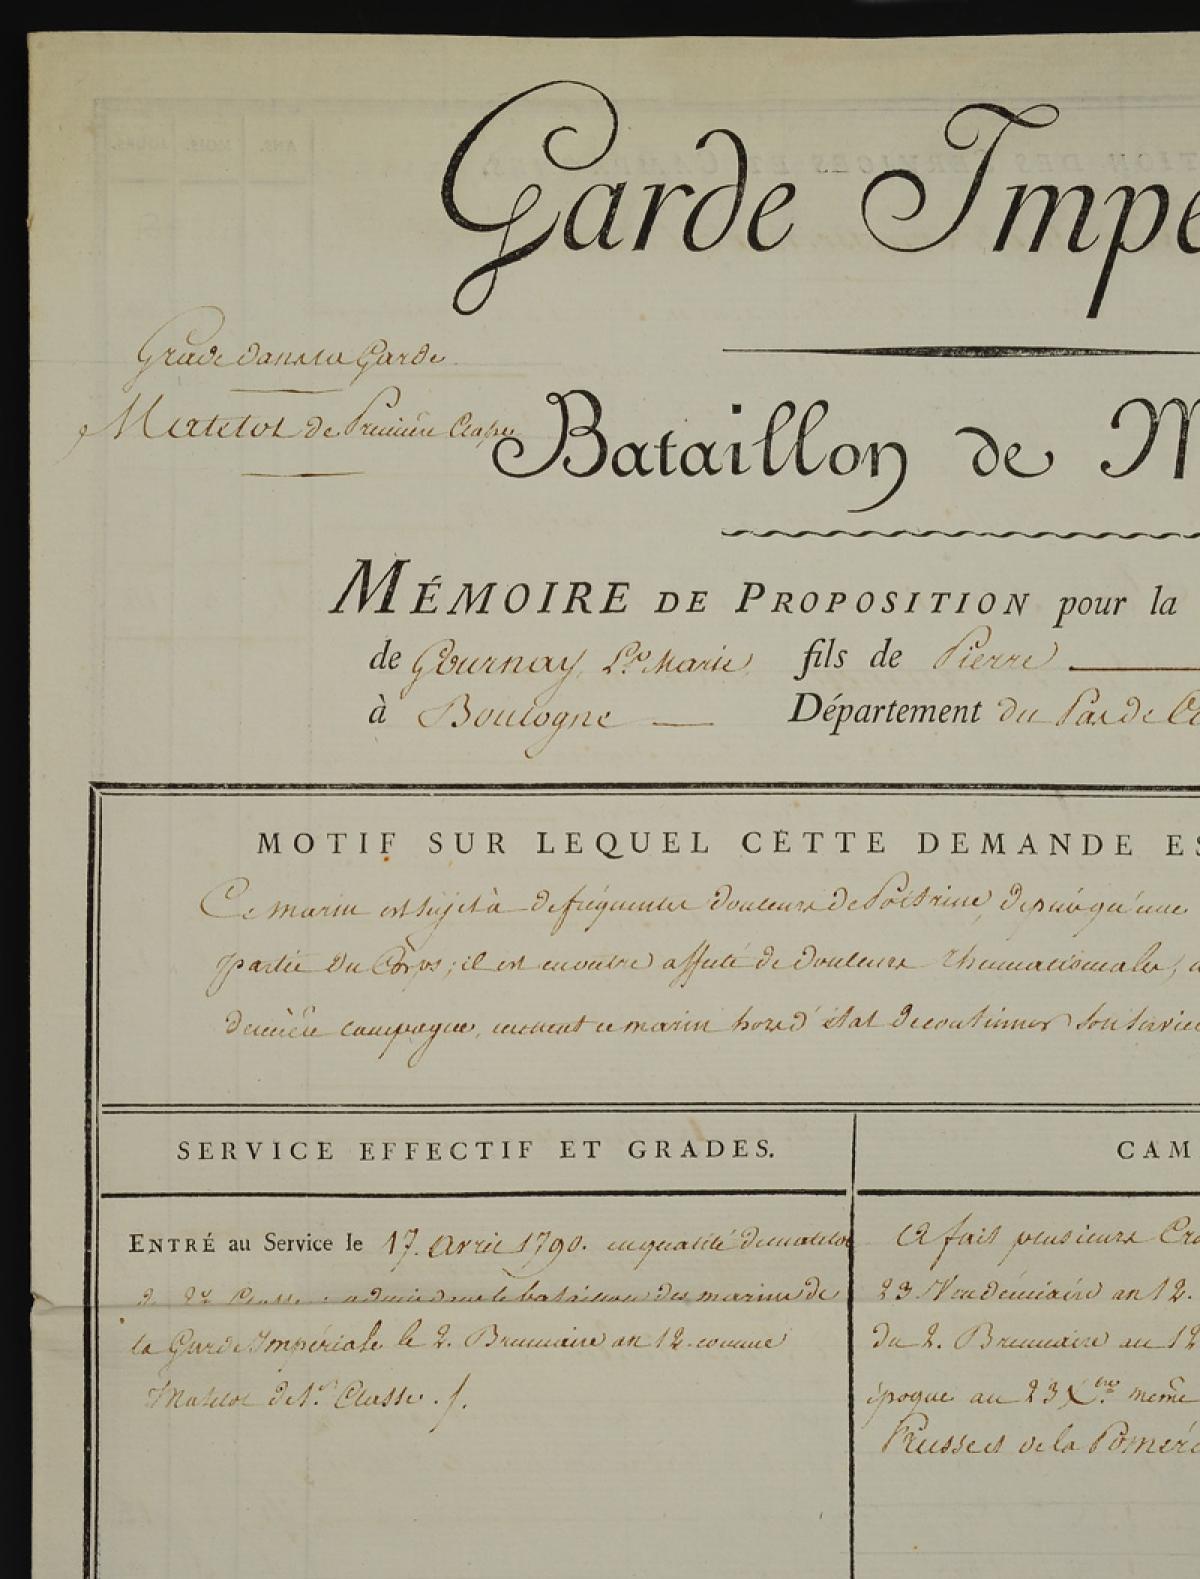 Garde Impé
Grade dans la Garde
Matelot de Première Classe
Bataillon de M
MÉMOIRE DE PROPOSITION pour la
de Gournay, Ls. Marie fils de Pierre
à Boulogne Département du Pas de Ca
MOTIF SUR LEQUEL CETTE DEMANDE ES
Ce marin est sujet à de fréquentes douleurs de Poitrine, depuis qu'une
partie du Corps; il est en outre affecté de douleurs rhumatismales,
dernière campagne, mettent ce marin hors d'état de continuer son service
SERVICE EFFECTIF ET GRADES.
CAM
ENTRÉ au Service le 17. Avril 1790. en qualité de matelot
de 2e Classe; admis dans le bataillon des marins de
la Garde Impériale le 2. Brumaire an 12. comme
Matelot de 1re Classe.
A fait plusieurs Cro
23. Vendémiaire an 12.
du 2. Brumaire an 12
époque au 23 Xbre même
Prusse et de la Poméra